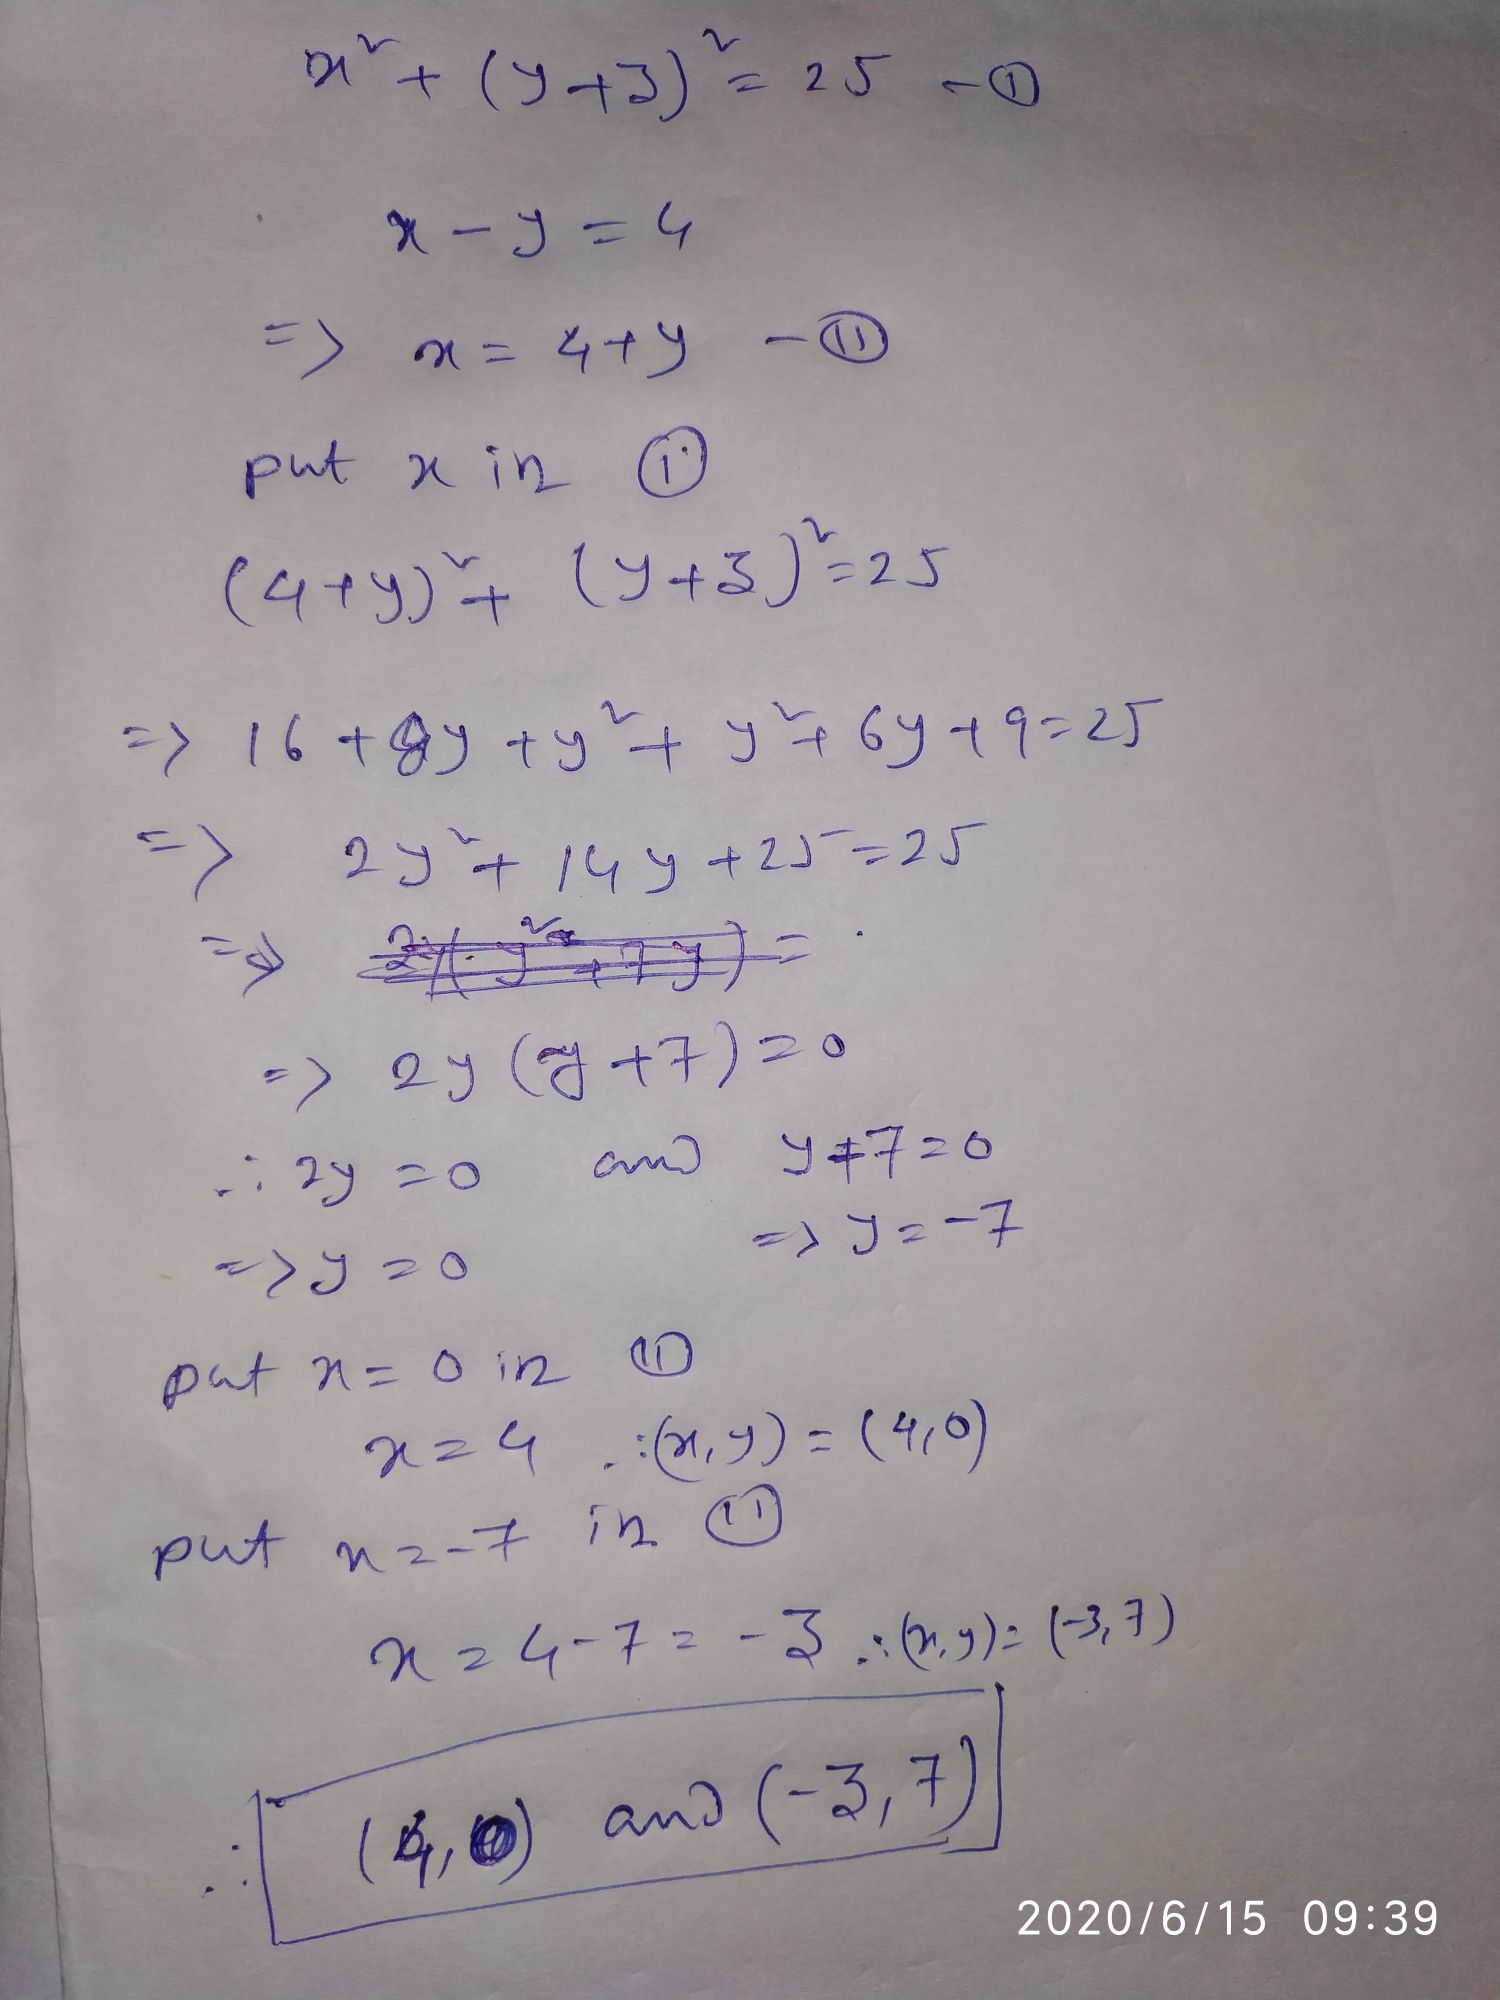 x² + (y+3)² = 25 - ①
x - y = 4
=> x = 4+y - ⑪
put x in ①
(4+y)² + (y+3)² = 25
=> 16 + 8y + y² + y² + 6y + 9 = 25
=> 2y² + 14y + 25 = 25
=> 2y(y² + 7y) =
=> 2y (y + 7) = 0
∴ 2y = 0 and y+7 = 0
=> y = 0 => y = -7
put x = 0 in ⑪
x = 4 ∴ (x, y) = (4, 0)
put x = -7 in ⑪
x = 4 - 7 = -3 ∴ (x, y) = (-3, 7)
∴ (4, 0) and (-3, 7)
2020/6/15 09:39